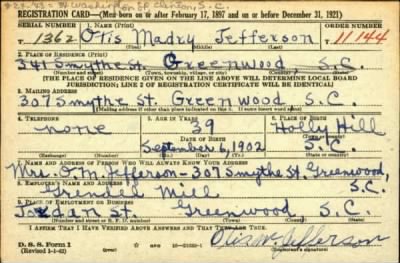 8-24-43 = 74 Washington St, Clinton, S.C.
REGISTRATION CARD—(Men born on or after February 17, 1897 and on or before December 31, 1921)
SERIAL NUMBER 1. NAME (Print) ORDER NUMBER
1362 Otis Madry Jefferson 11144
(First) (Middle) (Last)
2. PLACE OF RESIDENCE (Print)
341 Smythe St. Greenwood, S.C.
(Number and street) (Town, township, village, or city) (County) (State)
[THE PLACE OF RESIDENCE GIVEN ON THE LINE ABOVE WILL DETERMINE LOCAL BOARD
JURISDICTION; LINE 2 OF REGISTRATION CERTIFICATE WILL BE IDENTICAL]
3. MAILING ADDRESS
307 Smythe St. Greenwood, S.C.
[Mailing address if other than place indicated on line 2. If same insert word same]
4. TELEPHONE 5. AGE IN YEARS 6. PLACE OF BIRTH
none 39 Holly Hill
DATE OF BIRTH (Town or county)
September 6, 1902 S.C.
(Exchange) (Number) (Mo.) (Day) (Yr.) (State or country)
7. NAME AND ADDRESS OF PERSON WHO WILL ALWAYS KNOW YOUR ADDRESS
Mrs. O.M. Jefferson - 307 Smythe St. Greenwood,
8. EMPLOYER'S NAME AND ADDRESS S.C.
Grendel Mill
9. PLACE OF EMPLOYMENT OR BUSINESS
St. Greenwood S.C.
(Number and street or R. F. D. number) (Town) (County) (State)
I AFFIRM THAT I HAVE VERIFIED ABOVE ANSWERS AND THAT THEY ARE TRUE.
D. S. S. Form 1 Otis M. Jefferson
(Revised 1-1-42) (over) (Registrant's signature)